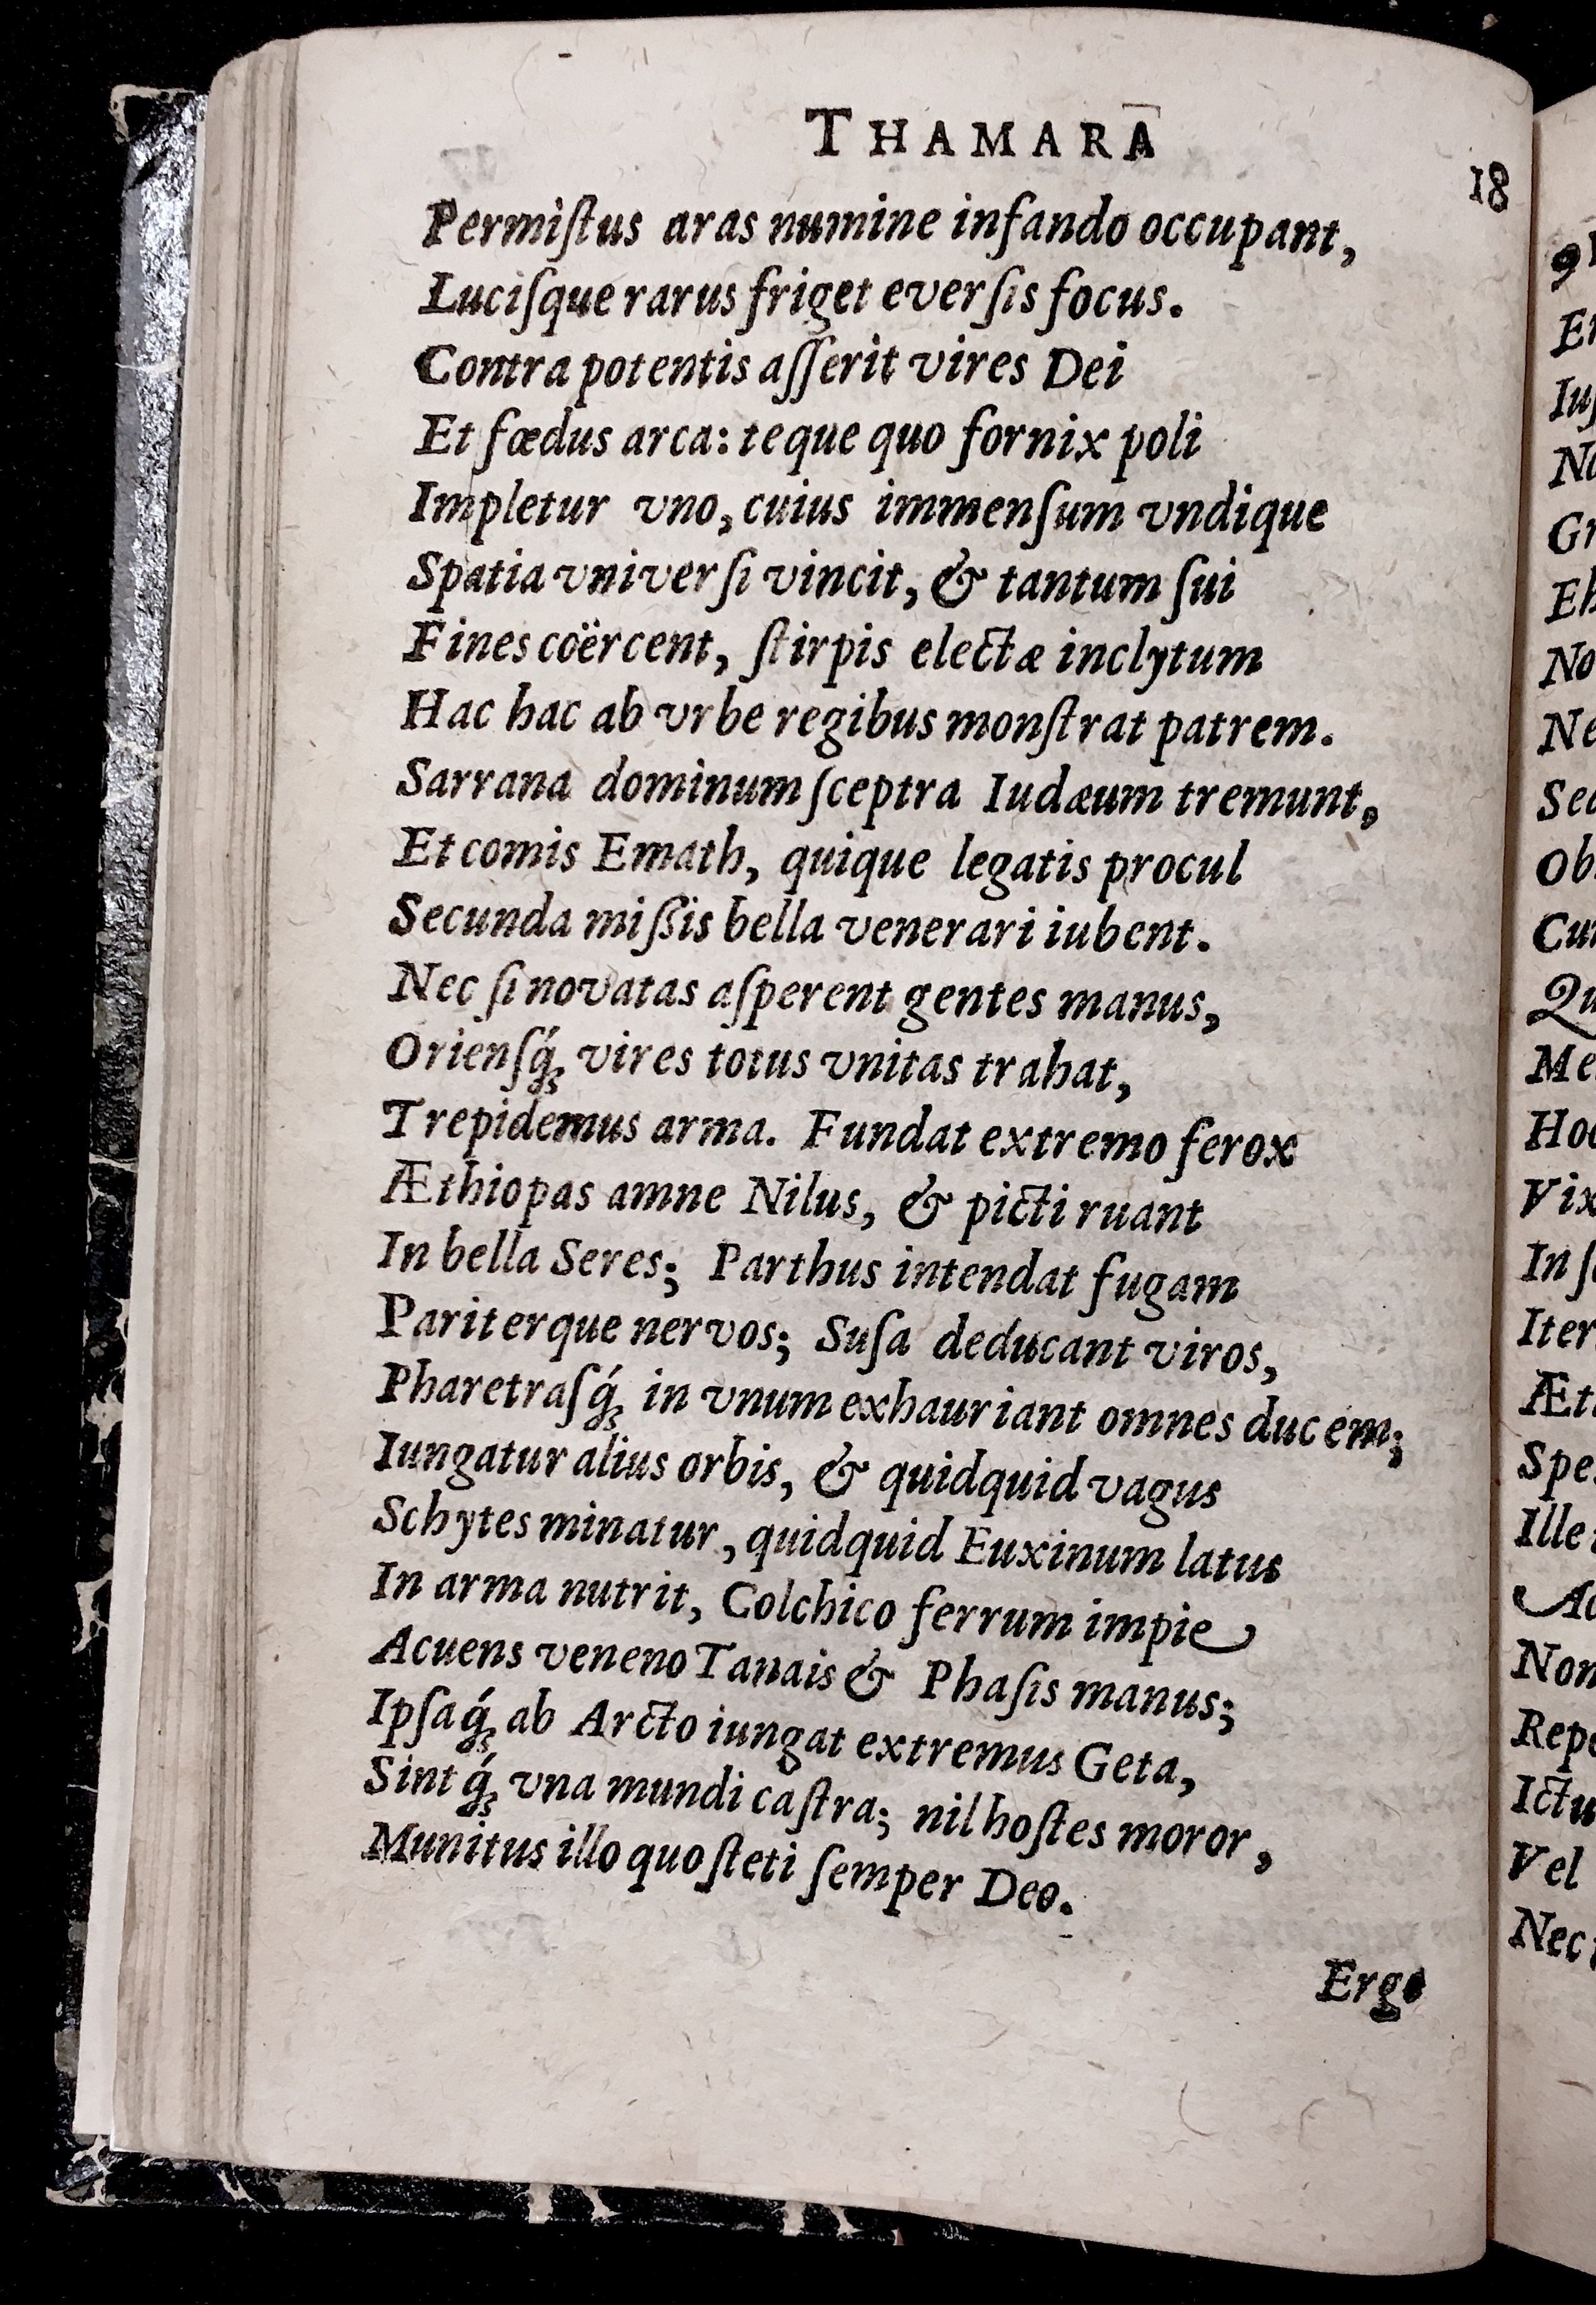 THAMARA
18
Permiſtus aras numine infando occupant,
Luciſque rarus friget everſis focus.
Contra potentis aſſerit vires Dei
Et fœdus arca: teque quo fornix poli
Impletur vno, cuius immenſum vndique
Spatia vniverſi vincit, & tantum ſui
Fines coërcent, ſtirpis electæ inclytum
Hac hac ab vrbe regibus monſtrat patrem.
Sarrana dominum ſceptra Iudæum tremunt,
Et comis Emath, quique legatis procul
Secunda miſsis bella venerari iubent.
Nec ſi novatas aſperent gentes manus,
Orienſq́; vires totus vnitas trahat,
Trepidemus arma. Fundat extremo ferox
Æthiopas amne Nilus, & picti ruant
In bella Seres; Parthus intendat fugam
Pariterque nervos; Suſa deducant viros,
Pharetraſq́; in vnum exhauriant omnes ducem;
Iungatur alius orbis, & quidquid vagus
Schytes minatur, quidquid Euxinum latus
In arma nutrit, Colchico ferrum impie
Acuens veneno Tanais & Phaſis manus;
Ipſaq́; ab Arcto iungat extremus Geta,
Sintq́; vna mundi caſtra; nil hoſtes moror,
Munitus illo quo ſteti ſemper Deo.
Ergo